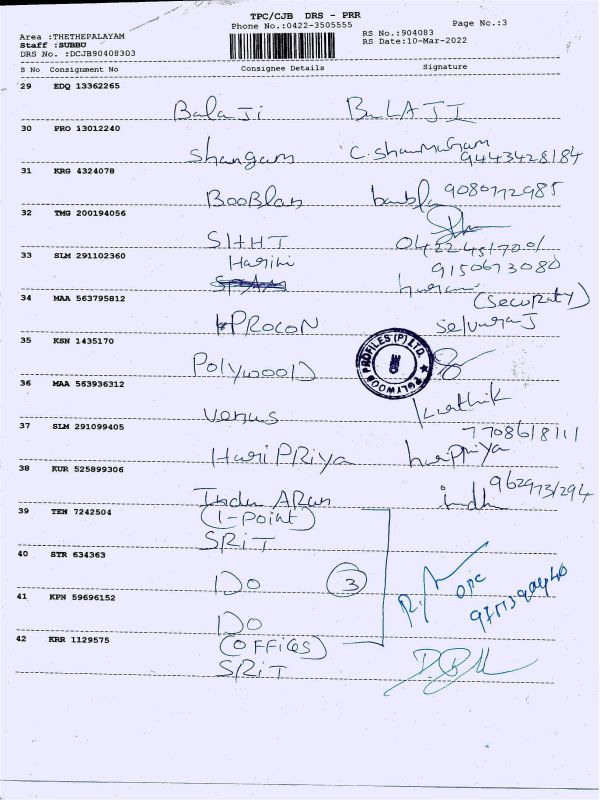 TPC/CJB DRS - PRR
Phone No.:0422-3505555
Page No.:3
Area :THETHEPALAYAM
RS No.:904083
Staff :SUBBU
RS Date:10-Mar-2022
DRS No. :DCJB90408303
S No Consignment No Consignee Details Signature
29 EDQ 13362265
Balaji BALAJI
30 PRO 13012240
Shangam C. Shanmugam
9443428184
31 KRG 4324078
BooBlan
32 TMG 200194056
SIHT
33 SLM 291102360
Harini
9150673080
34 MAA 563795812
PROCON
(Security)
Selvaraj
35 KSN 1435170
Polywood POLYWOOD PROFILES (P) LTD.
36 MAA 563936312
Venus Karthik
37 SLM 291099405
7708618111
HariPRiya haripriya
38 KUR 525899306
Indu Arun indhu
9629731294
39 TEN 7242504
(1-Point)
SRIT
40 STR 634363
Do 3
41 KPN 59696152
Do
42 KRR 1129575
(OFFICES)
SRIT